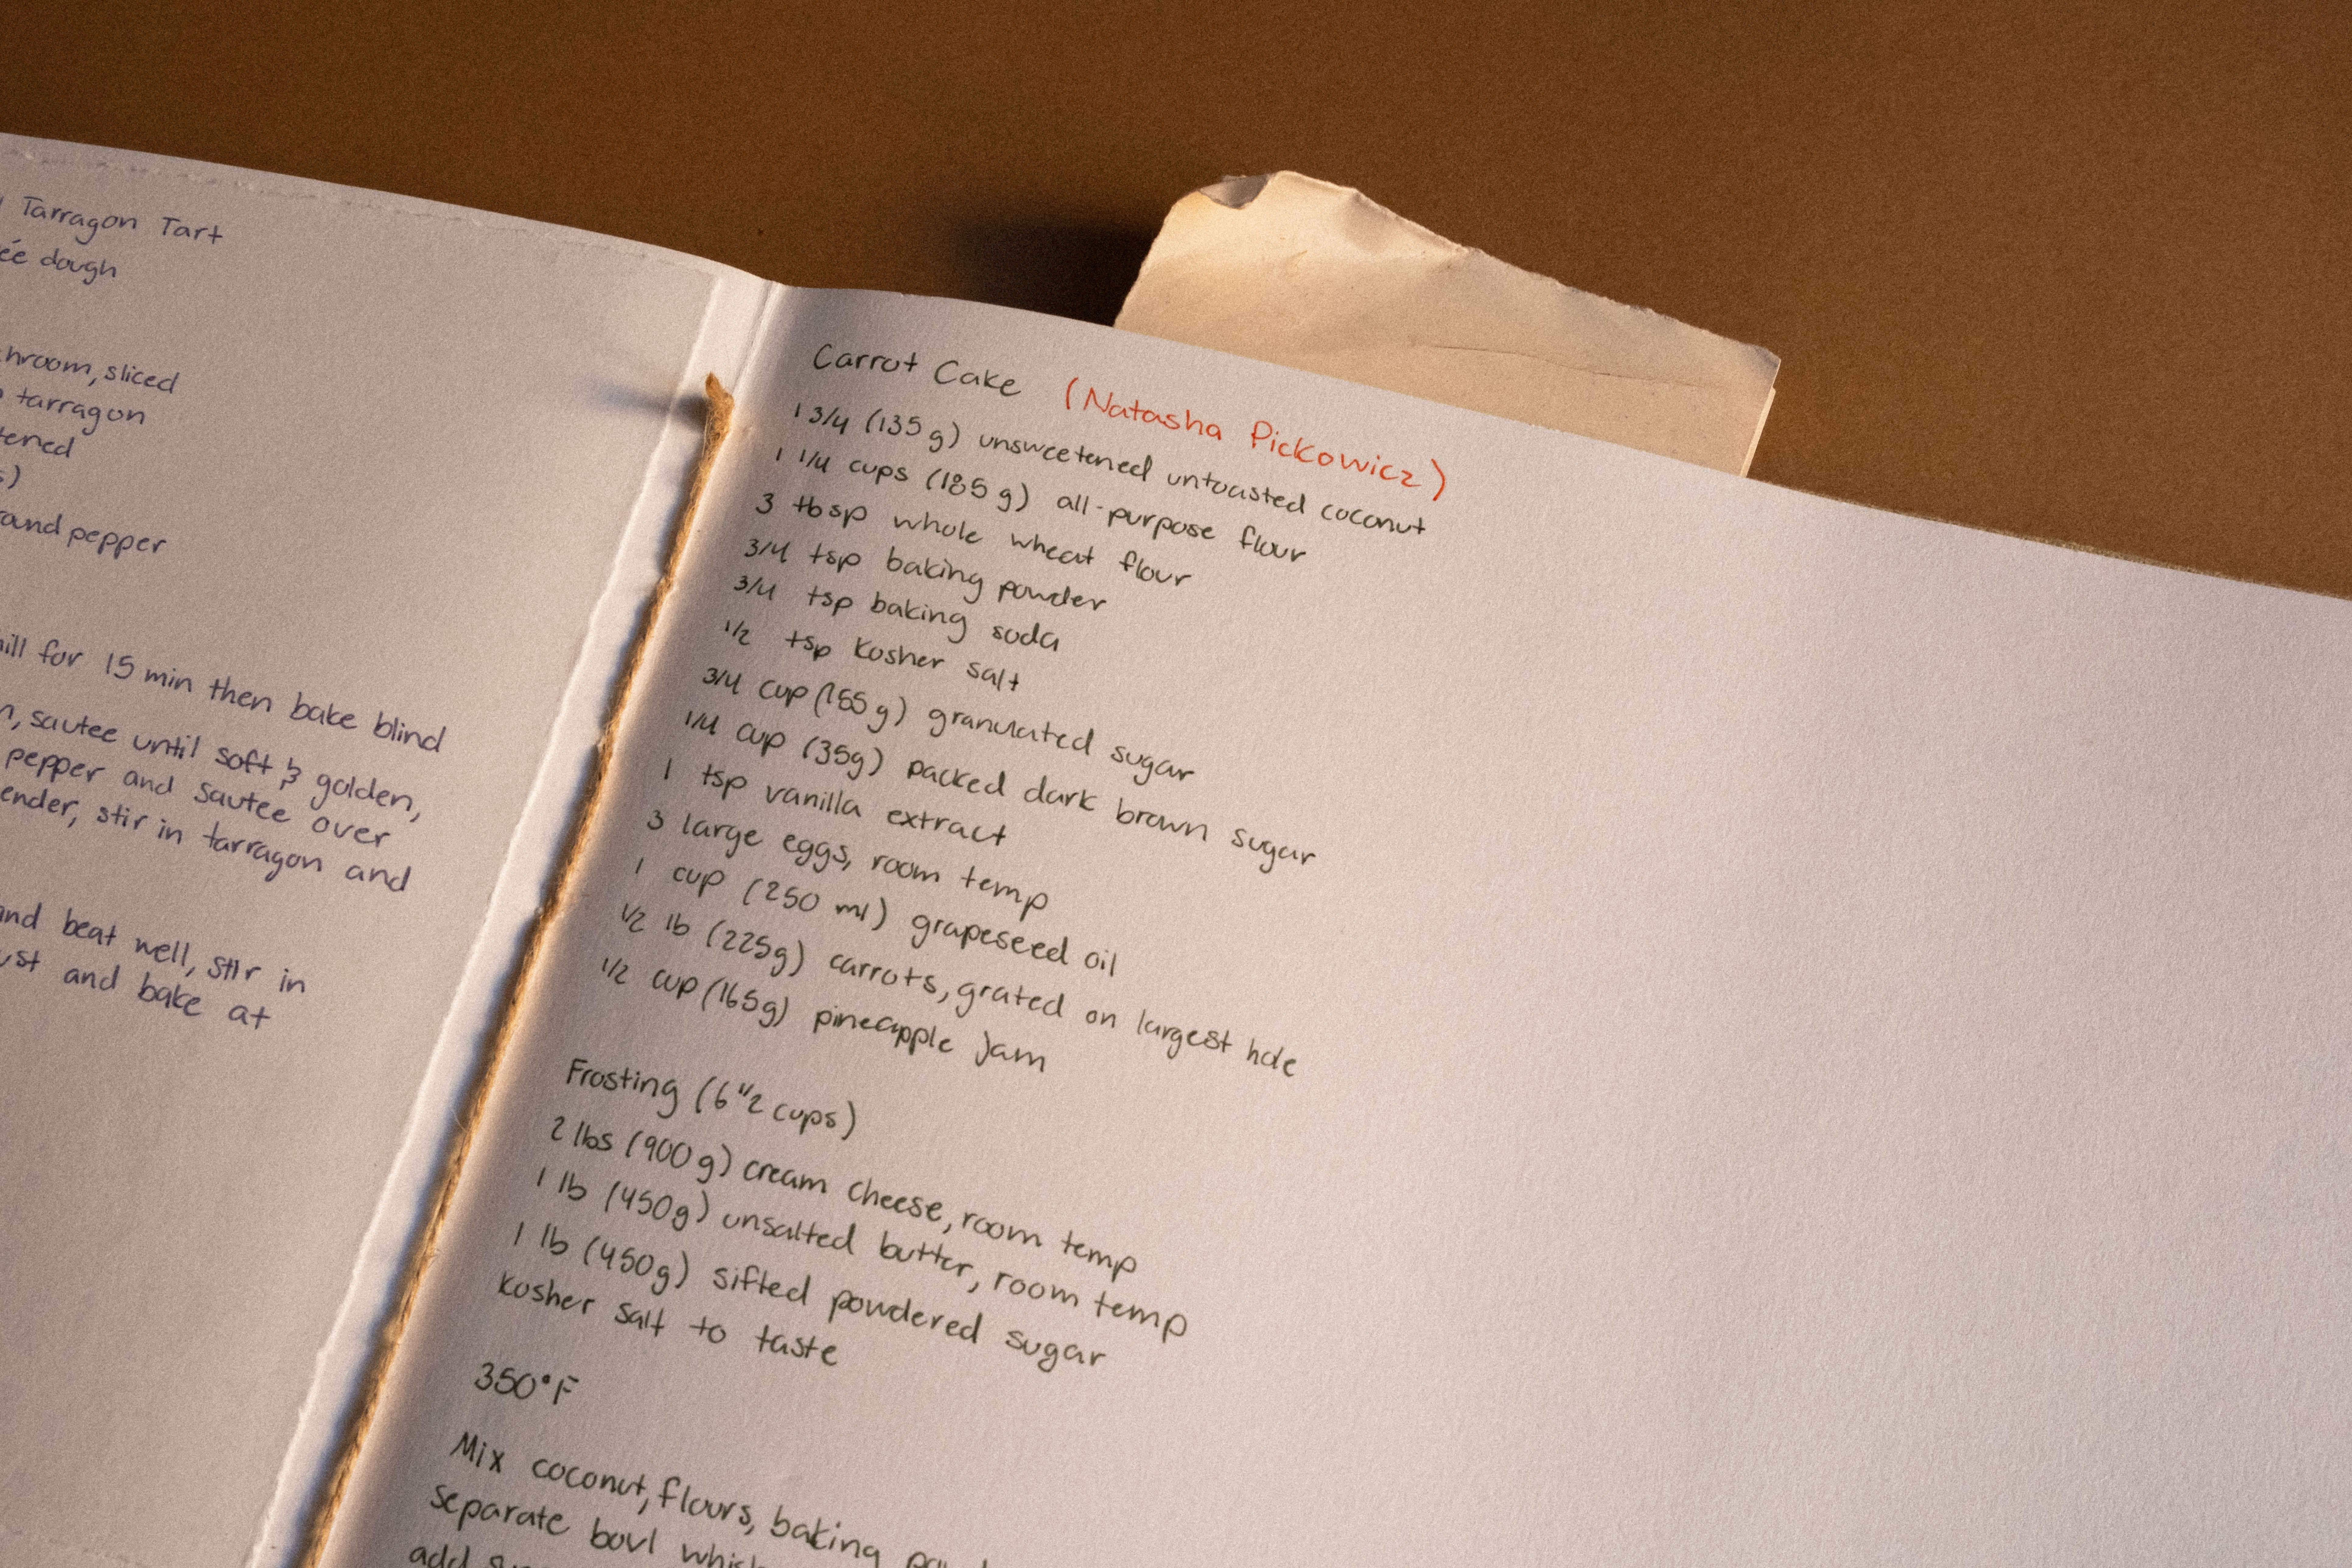 Tarragon Tart
dough
sliced
tarragon
and pepper
for 15 min then bake blind
sautee until soft & golden,
pepper and sautee over
stir in tarragon and
beat well, stir in
and bake at
Carrot Cake (Natasha Pickowicz)
1 3/4 (135 g) unsweetened untoasted coconut
1 1/4 cups (185 g) all-purpose flour
3 tbsp whole wheat flour
3/4 tsp baking powder
3/4 tsp baking soda
1/2 tsp kosher salt
3/4 cup granulated sugar
1/4 cup (35g) packed dark brown sugar
1 tsp vanilla extract
3 large eggs, room temp
1 cup (250 ml) grapeseed oil
1/2 lb (225g) carrots, grated on largest hole
1/2 cup (165g) pineapple jam
Frosting (6 1/2 cups)
2 lbs (900 g) cream cheese, room temp
1 lb (450g) unsalted butter, room temp
1 lb (450g) sifted powdered sugar
kosher salt to taste
350°F
Mix coconut, flours, baking
separate bowl
add